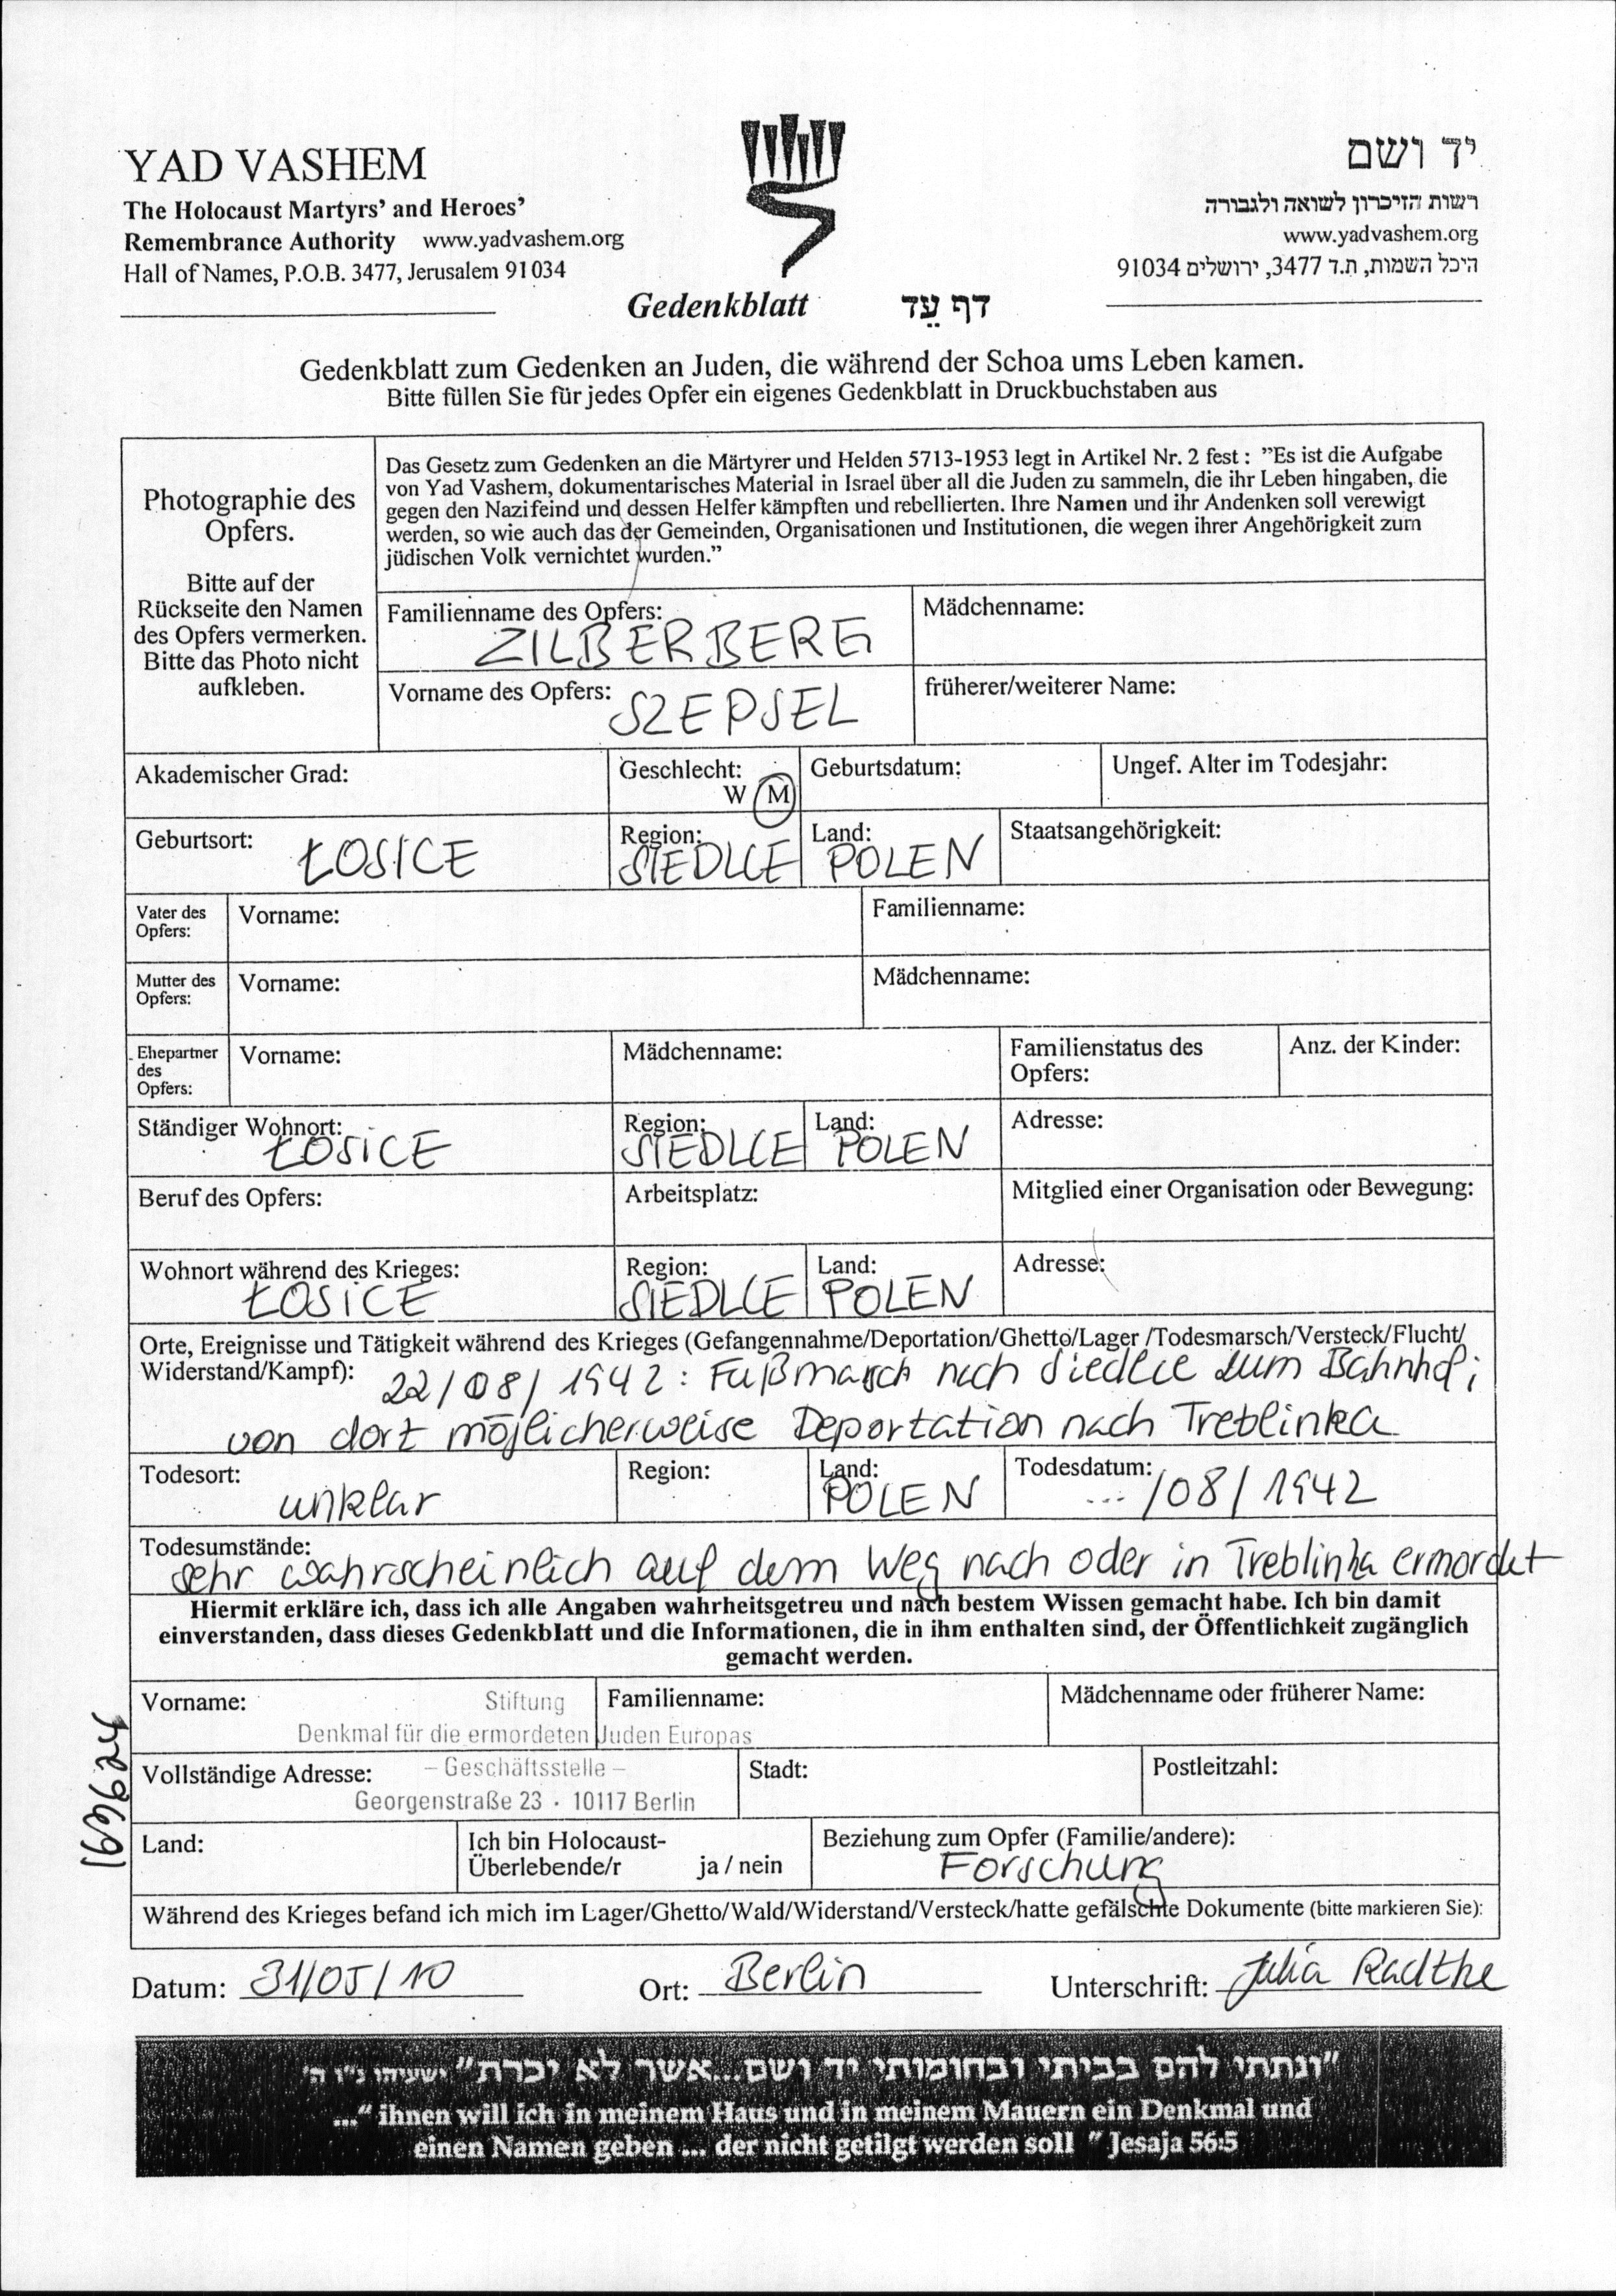 YAD VASHEM
The Holocaust Martyrs' and Heroes'
Remembrance Authority www.yadvashem.org
Hall of Names, P.O.B. 3477, Jerusalem 91034
יד ושם
רשות הזיכרון לשואה ולגבורה
www.yadvashem.org
היכל השמות, ת.ד 3477, ירושלים 91034
Gedenkblatt דף עֵד
Gedenkblatt zum Gedenken an Juden, die während der Schoa ums Leben kamen.
Bitte füllen Sie für jedes Opfer ein eigenes Gedenkblatt in Druckbuchstaben aus
Photographie des
Opfers.
Bitte auf der
Rückseite den Namen
des Opfers vermerken.
Bitte das Photo nicht
aufkleben.
Das Gesetz zum Gedenken an die Märtyrer und Helden 5713-1953 legt in Artikel Nr. 2 fest : "Es ist die Aufgabe
von Yad Vashem, dokumentarisches Material in Israel über all die Juden zu sammeln, die ihr Leben hingaben, die
gegen den Nazifeind und dessen Helfer kämpften und rebellierten. Ihre Namen und ihr Andenken soll verewigt
werden, so wie auch das der Gemeinden, Organisationen und Institutionen, die wegen ihrer Angehörigkeit zum
jüdischen Volk vernichtet wurden."
Familienname des Opfers: ZILBERBERG
Mädchenname:
Vorname des Opfers: SZEPSEL
früherer/weiterer Name:
Akademischer Grad:
Geschlecht: W M
Geburtsdatum:
Ungef. Alter im Todesjahr:
Geburtsort: ŁOSICE
Region: SIEDLCE
Land: POLEN
Staatsangehörigkeit:
Vater des
Opfers:
Vorname:
Familienname:
Mutter des
Opfers:
Vorname:
Mädchenname:
Ehepartner
des
Opfers:
Vorname:
Mädchenname:
Familienstatus des
Opfers:
Anz. der Kinder:
Ständiger Wohnort: ŁOSICE
Region: SIEDLCE
Land: POLEN
Adresse:
Beruf des Opfers:
Arbeitsplatz:
Mitglied einer Organisation oder Bewegung:
Wohnort während des Krieges: ŁOSICE
Region: SIEDLCE
Land: POLEN
Adresse:
Orte, Ereignisse und Tätigkeit während des Krieges (Gefangennahme/Deportation/Ghetto/Lager /Todesmarsch/Versteck/Flucht/
Widerstand/Kampf): 22/08/1942: Fußmarsch nach Siedlce zum Bahnhof;
von dort möglicherweise Deportation nach Treblinka
Todesort: unklar
Region:
Land: POLEN
Todesdatum: .../08/1942
Todesumstände:
sehr wahrscheinlich auf dem Weg nach oder in Treblinka ermordet
Hiermit erkläre ich, dass ich alle Angaben wahrheitsgetreu und nach bestem Wissen gemacht habe. Ich bin damit
einverstanden, dass dieses Gedenkblatt und die Informationen, die in ihm enthalten sind, der Öffentlichkeit zugänglich
gemacht werden.
Vorname:
Familienname:
Mädchenname oder früherer Name:
Stiftung
Denkmal für die ermordeten Juden Europas
– Geschäftsstelle –
Georgenstraße 23 · 10117 Berlin
Vollständige Adresse:
Stadt:
Postleitzahl:
Land:
Ich bin Holocaust-
Überlebende/r ja / nein
Beziehung zum Opfer (Familie/andere):
Forschung
Während des Krieges befand ich mich im Lager/Ghetto/Wald/Widerstand/Versteck/hatte gefälschte Dokumente (bitte markieren Sie):
Datum: 31/05/10 Ort: Berlin Unterschrift: Julia Radtke
"ונתתי להם בביתי ובחומותי יד ושם...אשר לא יכרת" ישעיהו נ"ו ה'
..." ihnen will ich in meinem Haus und in meinem Mauern ein Denkmal und
einen Namen geben ... der nicht getilgt werden soll " Jesaja 56:5